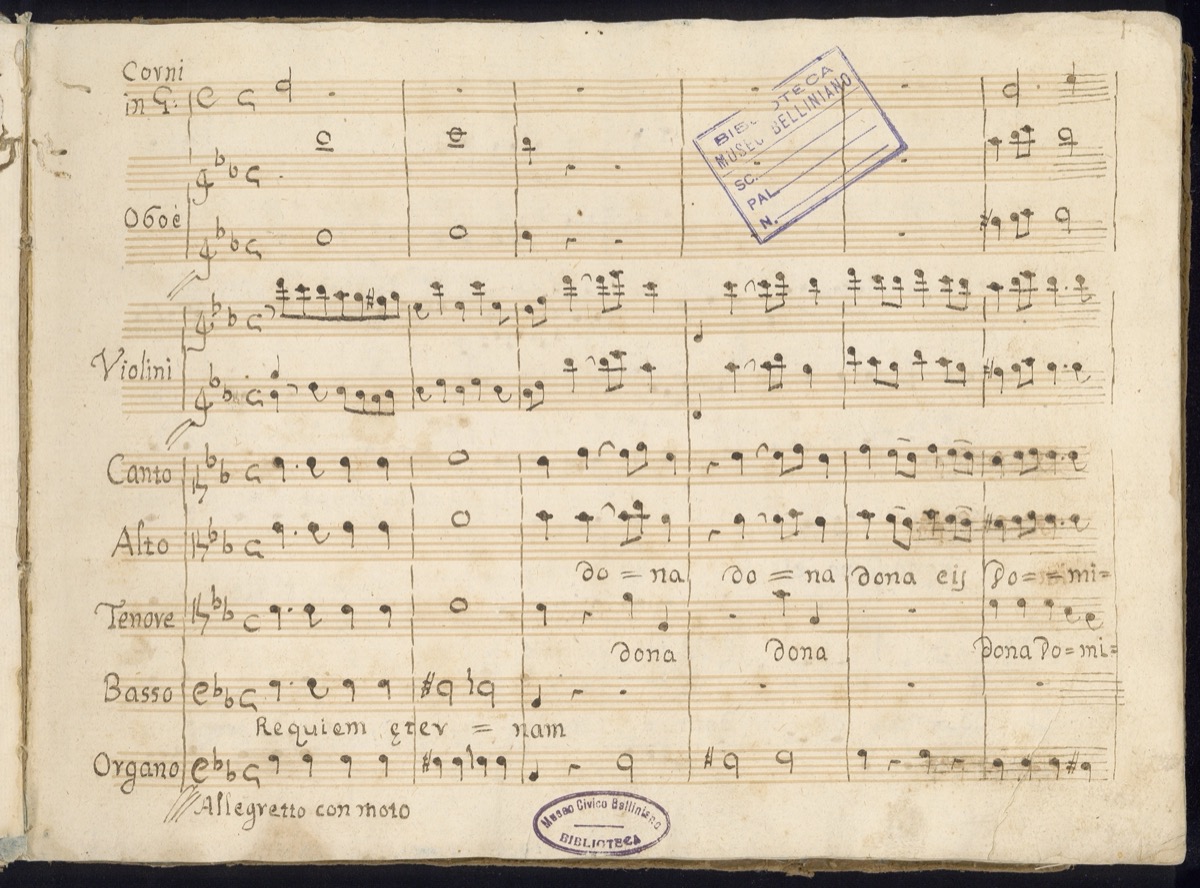 Corni
in G.
BIBLIOTECA
MUSEO BELLINIANO
SC.
PAL.
N.
Oboè
Violini
Canto
Alto
do = na do = na dona eis Do= = mi=
Tenore
dona dona dona Do= mi=
Basso
Requiem ęter = nam
Organo
Allegretto con moto
Museo Civico Belliniano
BIBLIOTECA